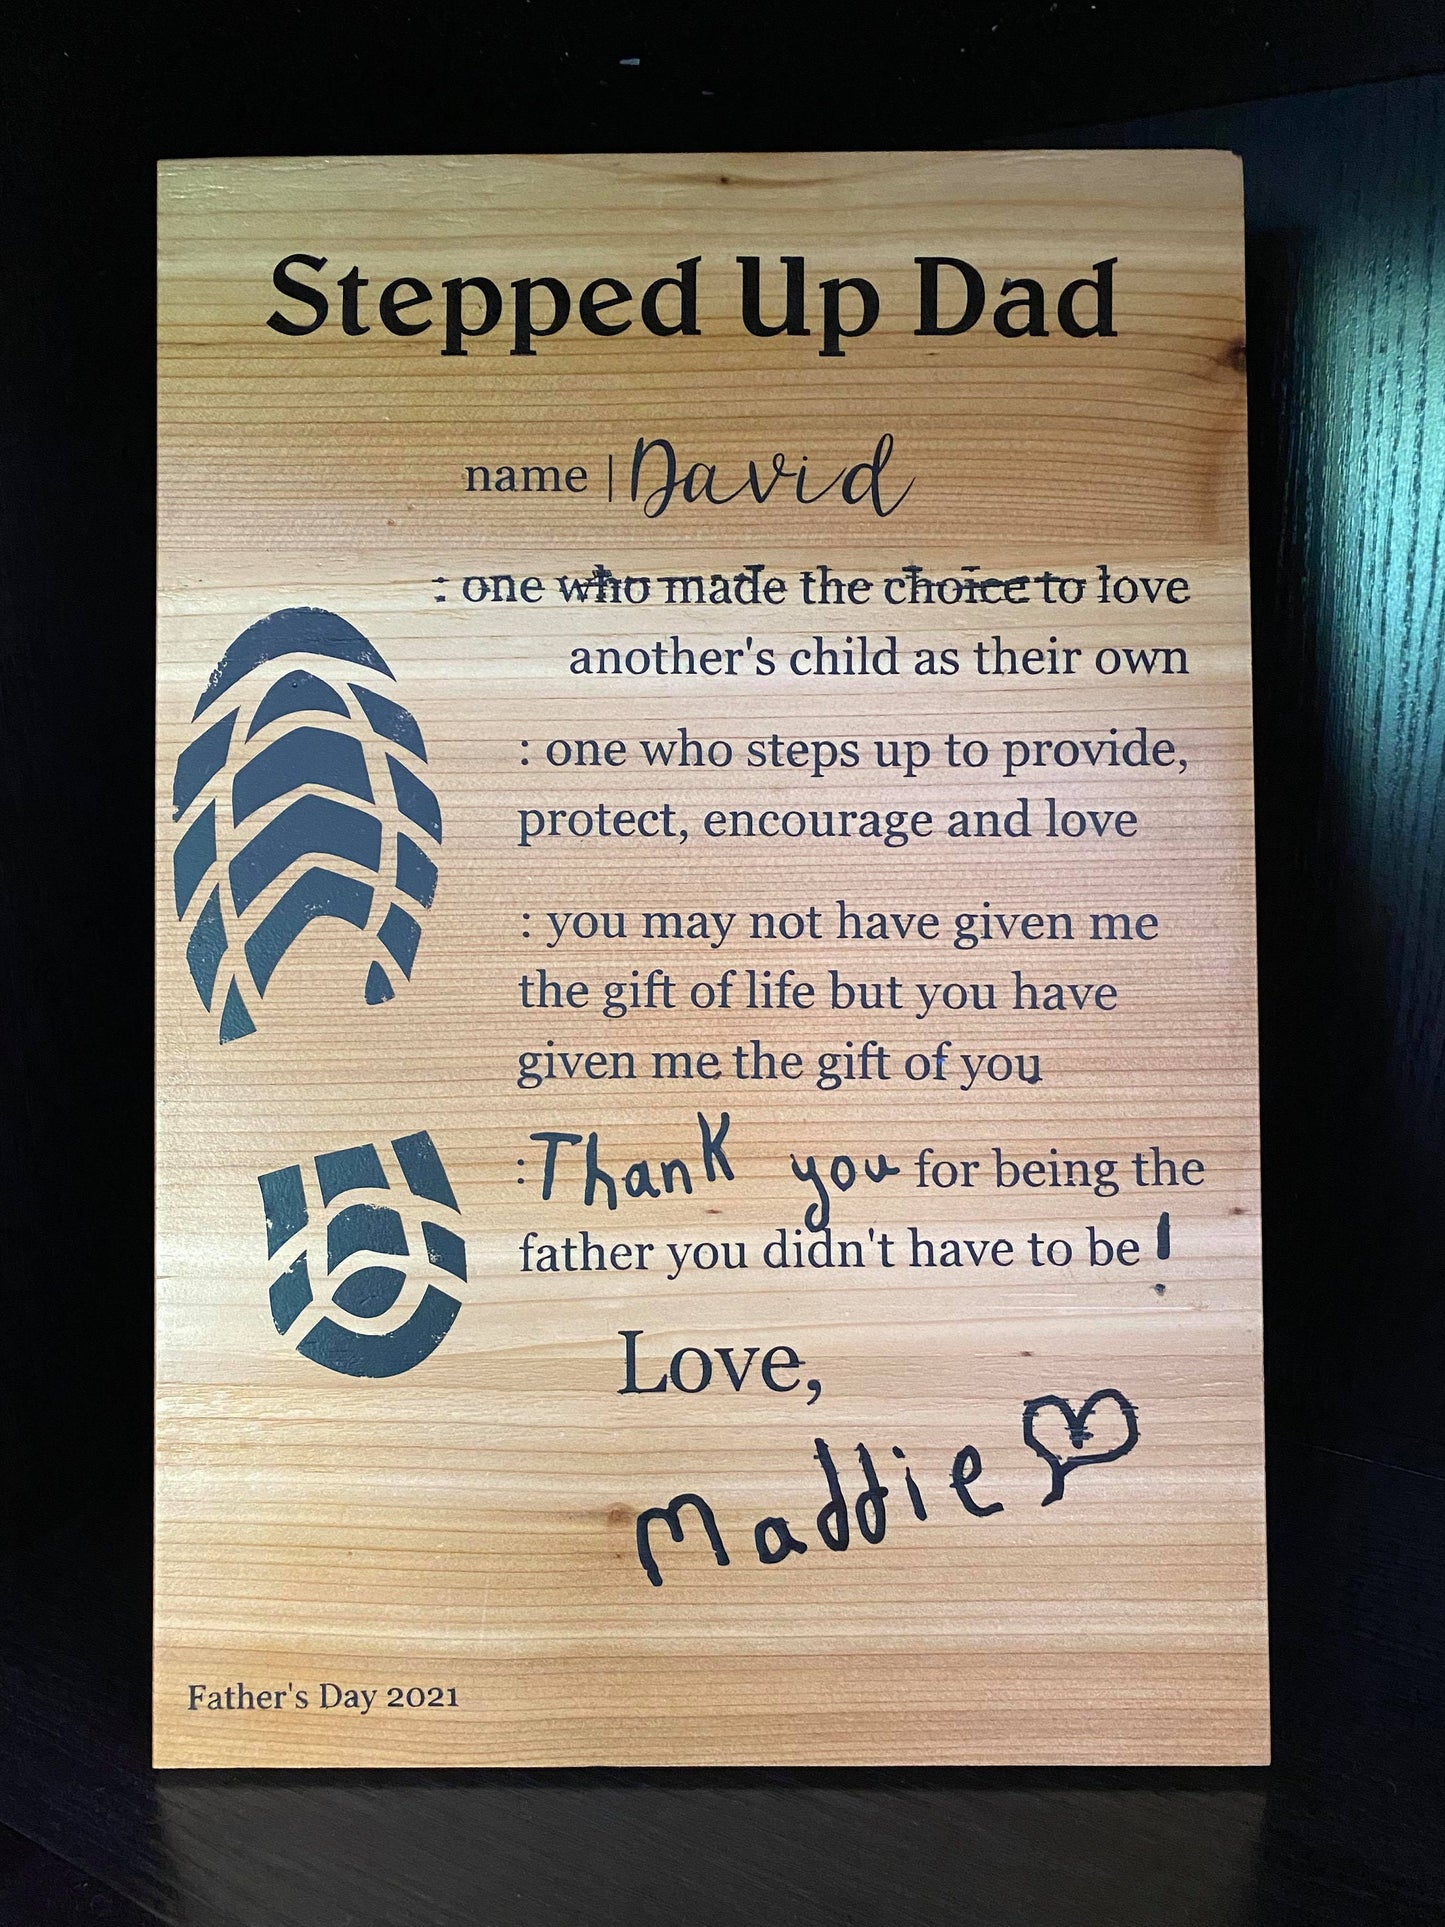 Stepped Up Dad
name | David
: one who made the choice to love
another's child as their own
: one who steps up to provide,
protect, encourage and love
: you may not have given me
the gift of life but you have
given me the gift of you
: Thank you for being the
father you didn't have to be!
Love,
Maddie
Father's Day 2021